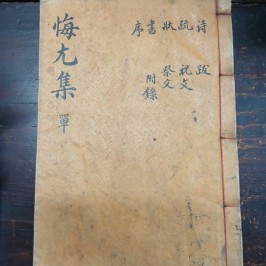 悔尤集 單
詩 跋
疏 祝文
狀 祭文
書 附錄
序